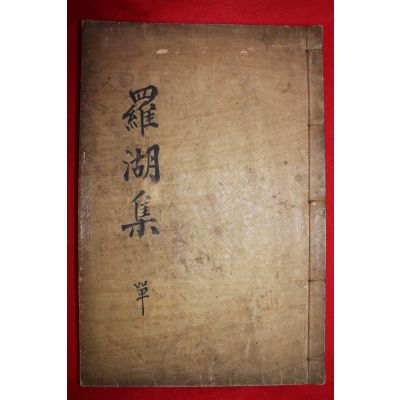 羅湖集
單